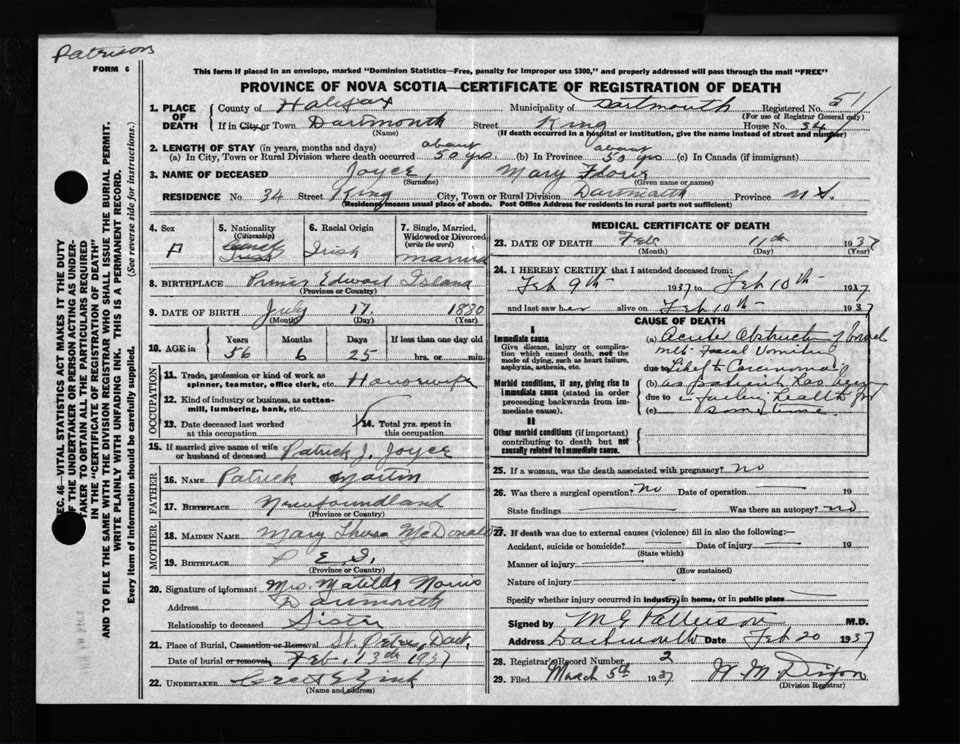 Patterson
FORM 6
This form if placed in an envelope, marked "Dominion Statistics—Free, penalty for improper use $300," and properly addressed will pass through the mail "FREE"
PROVINCE OF NOVA SCOTIA—CERTIFICATE OF REGISTRATION OF DEATH
1. PLACE OF DEATH County of Halifax Municipality of Dartmouth Registered No. 51
(For use of Registrar General only)
If in City or Town Dartmouth Street King House No. 34
(Name) (If death occurred in a hospital or institution, give the name instead of street and number)
2. LENGTH OF STAY (in years, months and days)
(a) In City, Town or Rural Division where death occurred about 50 yrs. (b) In Province about 50 yrs (c) In Canada (if immigrant)
3. NAME OF DECEASED Joyce, Mary
(Surname) (Given name or names)
RESIDENCE No. 34 Street King City, Town or Rural Division Dartmouth Province N.S.
(Residency means usual place of abode. Post Office Address for residents in rural parts not sufficient)
4. Sex F
5. Nationality (Citizenship)
6. Racial Origin Irish
7. Single, Married, Widowed or Divorced (write the word) Married
8. BIRTHPLACE Prince Edward Island
(Province or Country)
9. DATE OF BIRTH July 17. 1880
(Month) (Day) (Year)
10. AGE in Years 56 Months 6 Days 25 If less than one day old hrs. or min.
OCCUPATION
11. Trade, profession or kind of work as spinner, teamster, office clerk, etc. Housewife
12. Kind of industry or business, as cotton-mill, lumbering, bank, etc.
13. Date deceased last worked at this occupation 14. Total yrs. spent in this occupation
15. If married give name of wife or husband of deceased Patrick J. Joyce
FATHER
16. NAME Patrick Martin
17. BIRTHPLACE Newfoundland
(Province or Country)
MOTHER
18. MAIDEN NAME Mary Theresa McDonald
19. BIRTHPLACE P. E. I.
(Province or Country)
20. Signature of informant Mrs. Matilda Norris
Address Dartmouth
Relationship to deceased Sister
21. Place of Burial, Cremation or Removal St. Peters, Dart.
Date of burial or removal, Feb. 13th 1937
22. UNDERTAKER
(Name and address)
MEDICAL CERTIFICATE OF DEATH
23. DATE OF DEATH Feb 11th 1937
(Month) (Day) (Year)
24. I HEREBY CERTIFY that I attended deceased from:
Feb 9th 1937 to Feb 10th 1937
and last saw her alive on Feb 10th 1937
CAUSE OF DEATH
I
Immediate cause
Give disease, injury or complication which caused death, not the mode of dying, such as heart failure, asphyxia, asthenia, etc.
(a) Acute Obstruction of bowel
with Faecal Vomiting
due to Likely Carcinoma
Morbid conditions, if any, giving rise to immediate cause (stated in order proceeding backwards from immediate cause).
(b) as patient has been
due to in failing health for
(c) sometime
II
Other morbid conditions (if important) contributing to death but not causally related to immediate cause.
25. If a woman, was the death associated with pregnancy? no
26. Was there a surgical operation? no Date of operation 19
State findings Was there an autopsy? no
27. If death was due to external causes (violence) fill in also the following:—
Accident, suicide or homicide? Date of injury 19
(State which)
Manner of injury
(How sustained)
Nature of injury
Specify whether injury occurred in industry, in home, or in public place
Signed by M G Patterson M.D.
Address Dartmouth Date Feb 20 1937
28. Registrar's Record Number 2
29. Filed March 5th 1937
(Division Registrar)
SEC. 46—VITAL STATISTICS ACT MAKES IT THE DUTY OF THE UNDERTAKER OR PERSON ACTING AS UNDERTAKER TO OBTAIN ALL THE PARTICULARS REQUIRED IN THE "CERTIFICATE OF REGISTRATION OF DEATH" AND TO FILE THE SAME WITH THE DIVISION REGISTRAR WHO SHALL ISSUE THE BURIAL PERMIT.
WRITE PLAINLY WITH UNFADING INK. THIS IS A PERMANENT RECORD.
Every item of information should be carefully supplied. (See reverse side for instructions.)